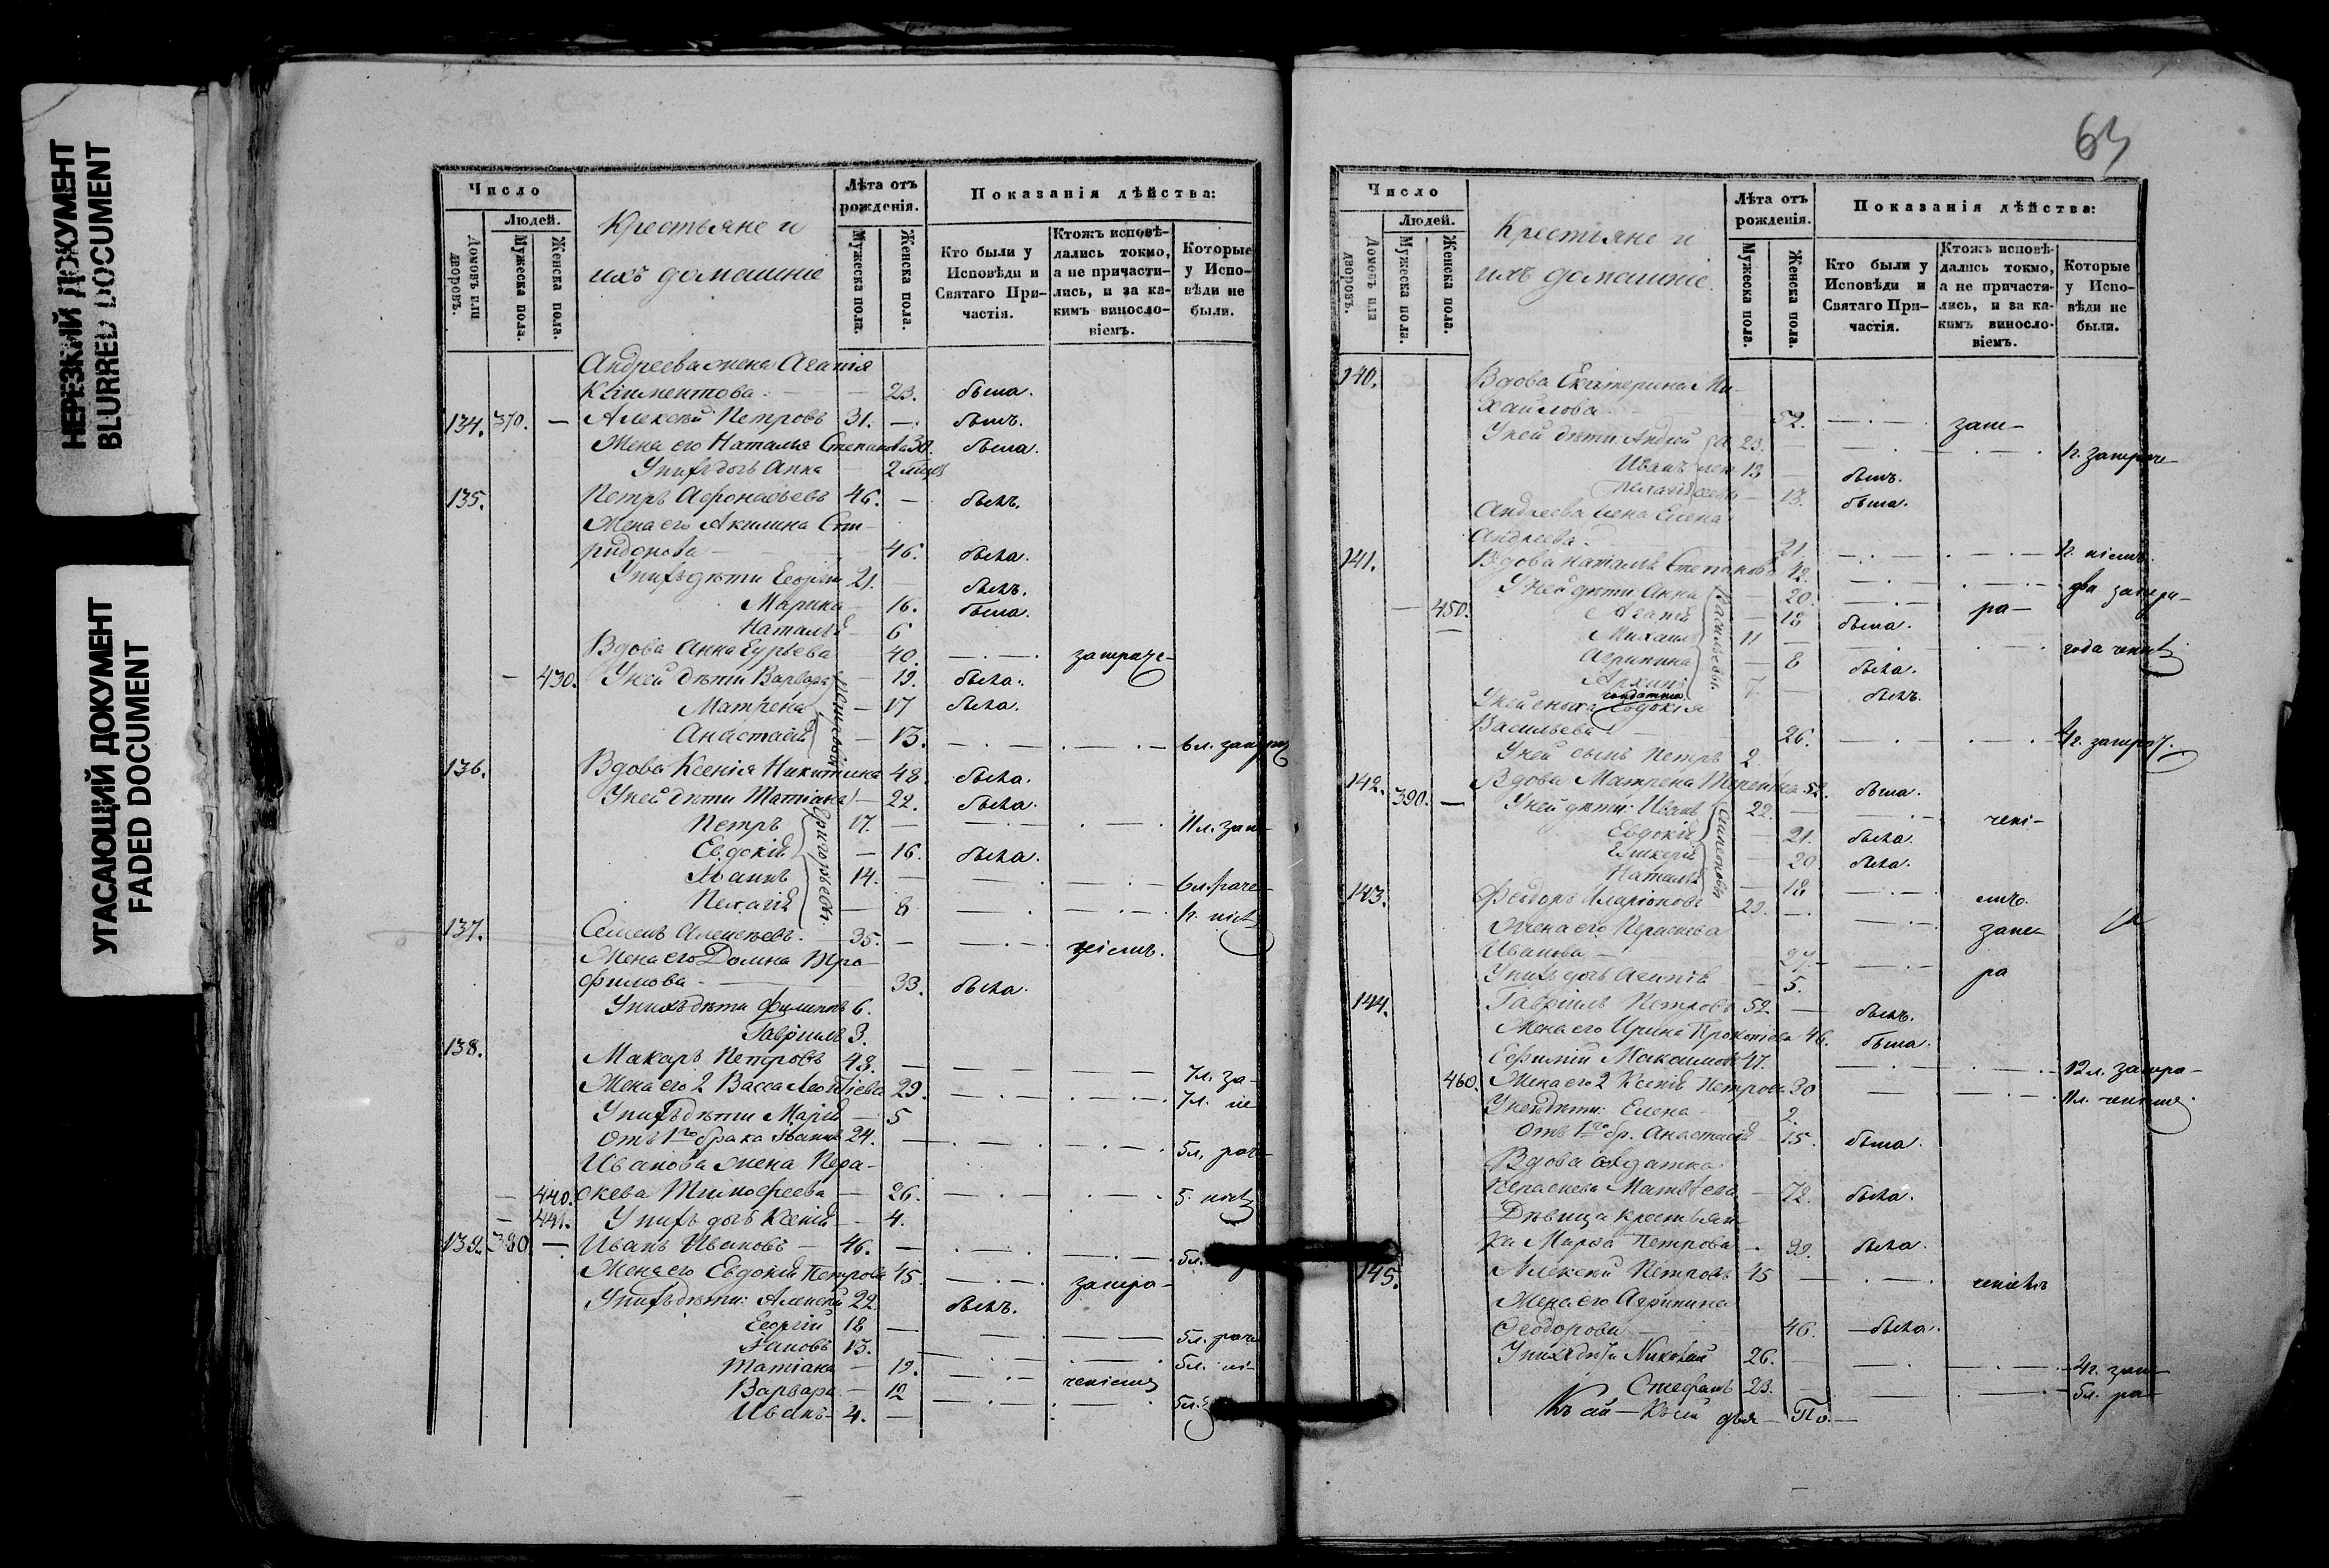 НЕРЕЗКИЙ ДОКУМЕНТ
BLURRED DOCUMENT
УГАСАЮЩИЙ ДОКУМЕНТ
FADED DOCUMENT
Число
Людей.
Домовъ или дворовъ.
Мужеска пола.
Женска пола.
Крестьяне и
ихъ домашніе
Лѣта отъ рожденія.
Мужеска пола.
Женска пола.
Показанія дѣйства:
Кто были у Исповѣди и Святаго Причастія.
Ктожъ исповѣ-
дались токмо,
а не причасти-
лись, и за ка-
кимъ виносло-
віемъ.
Которые
у Испо-
вѣди не
были.
Андреева жена Агапія
Климентова — 23. была.
134. 370. — Алексѣй Петровъ 31. — былъ.
Жена его Наталья Степанова 30. была.
У нихъ дочь Анна — 2
135. Петръ Афонасьевъ 46. — былъ.
Жена его Акилина Спи-
ридонова — 46. была.
У нихъ дѣти Георгій 21. — былъ.
Марина — 16. была.
Наталья — 6
Вдова Анна Гурьева — 40. запраче-
— 430. У ней дѣти Варвара — 19. была.
Матрена — 17 была.
Анастасія — 13. 6 л.
136. Вдова Ксенія Никитина 48. была.
У ней дѣти Татіана — 22. была.
Петръ 17. — 11 л. зап-
Евдокія — 16. была.
Іоаннъ 14. — 6 л. раче-
Пелагія — 8
Григорьевы.
137. Семенъ Алексѣевъ. 35. — ніемъ.
Жена его Домна Тро-
фимова — 33. была.
У нихъ дѣти Филиппъ 6.
Гавріилъ 3.
138. Макаръ Петровъ 48. — 7 л. за-
Жена его 2 Васса Леонтіева 29. 7 л.
У нихъ дѣти Марія — 5
Отъ 1го брака Іоаннъ 24. — 5 л. рач-
Иванова жена Пера-
— 440. скева Тимофеева — 26. 5.
— 441. У нихъ дочь Ксенія — 4.
139. 380. — Иванъ Ивановъ — 46. — 5 л.
Жена его Евдокія Петрова 45. запра-
У нихъ дѣти: Алексѣй 22. былъ.
Георгій 18 — 5 л. раче
Іаковъ 13. 5 л.
Татіана — 19. ченіемъ
Варвара — 12 5 л.
Иванъ — 4. —
63
Число
Людей.
Домовъ или дворовъ.
Мужеска пола.
Женска пола.
Крестьяне и
ихъ домашніе.
Лѣта отъ рожденія.
Мужеска пола.
Женска пола.
Показанія дѣйства:
Кто были у Исповѣди и Святаго Причастія.
Ктожъ исповѣ-
дались токмо,
а не причасти-
лись, и за ка-
кимъ виносло-
віемъ.
Которые
у Испо-
вѣди не
были.
140. Вдова Екатерина Ми-
хайлова 52. зап-
У ней дѣти: Андрей 23. —
Иванъ 13 — былъ.
Пелагія — 13. была.
Андреева жена Елена
Андреева. 21.
141. Вдова Наталья Степанова 42. два запра-
У ней дѣти: Анна — 20. ра-
— 450. Агапія — 18 была.
Михаилъ 11 — года
Агрипина — 8 была.
Архипъ 7. — былъ.
Васильевы.
У ней сноха солдатка Евдокія
Васильева — 26. 4 г. запрач.
У ней сынъ Петръ 2.
142. Вдова Матрена Терентьева 52. была.
390. — У ней дѣти: Иванъ 22. — чені-
Евдокія — 21. была.
Гликерія — 20 была.
Наталья — 18 емъ.
143. Феодоръ Иларіоновъ 29. — запа
Жена его Параскева
Иванова — 27. ра
У нихъ дочь Агапія — 5.
144. Гавріилъ Петровъ 52. — былъ.
Жена его Ирина Прокопіева 46. была.
Ефимій Максимовъ 47. 12 л. запра-
460. Жена его 2 Ксенія Петрова 30 11 л. ченіемъ.
У нихъ дѣти: Елена — 2.
Отъ 1го бр. Анастасія — 15. была.
Вдова солдатка
Параскева Матвѣева — 72. была.
Дѣвица крестьян-
ка Марѳа Петрова — 39. была.
145. Алексѣй Петровъ 45 — ченіемъ
Жена его Агрипина
Ѳеодорова — 46. — была.
У нихъ дѣти Николай 26. 4 г. зап-
Стефанъ 23. 5 л. ра-